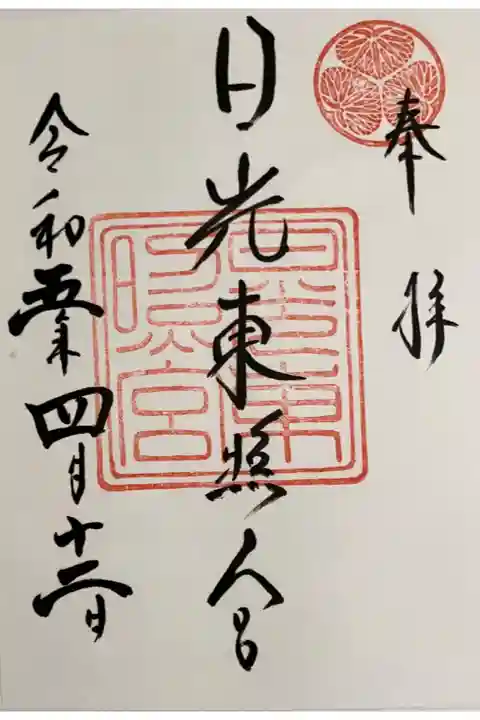 奉拝
日光東照宮
令和五年四月十二日
日光東
照宮